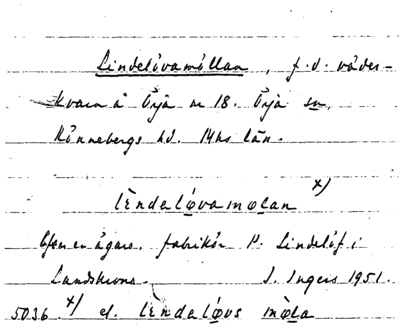 Lindelövamöllan, f.d. väder-
kvarn å Örja nr 18. Örja sn,
Rönnebergs hd. Mhs län.
lèndaló̱vamø̱lan x)
Efter en ägare, fabrikör P. Lindelöf i
Landskrona. I. Ingers 1951.
5036 x) el. lèndaló̱vs mø̀la